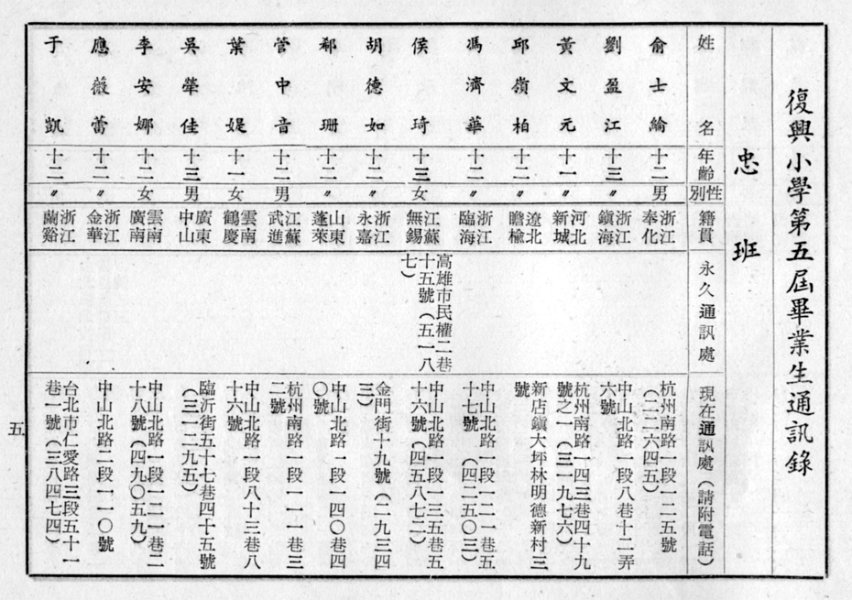 復興小學第五屆畢業生通訊錄
忠班
姓名 年齡 性別 籍貫 永久通訊處 現在通訊處(請附電話)
俞士綸 十二 男 浙江奉化 杭州南路一段一二五號(二二六四五)
劉盈江 十三 〃 浙江鎮海 中山北路一段八巷十二弄六號
黃文元 十一 〃 河北新城 杭州南路一四三巷四十九號之一(三一九七六)
邱嶺柏 十二 〃 遼北瞻榆 新店鎮大坪林明德新村三號
馮濟華 十二 〃 浙江臨海 中山北路一段一二一巷五十七號(四二五〇三)
侯琦 十三 女 江蘇無錫 高雄市民權二巷十五號(五一八七) 中山北路一段一三五巷五十六號(四五八七二)
胡德如 十二 〃 浙江永嘉 金門街十九號(二九三四三)
鄒珊 十二 〃 山東蓬萊 中山北路一段一四〇巷四〇號
管中音 十二 男 江蘇武進 杭州南路一段一一一巷三二號
葉媞 十一 女 雲南鶴慶 中山北路一段八十三巷八十六號
吳犖佳 十三 男 廣東中山 臨沂街五十七巷四十五號(三一二九五)
李安娜 十二 女 雲南廣南 中山北路一段一二一巷二十八號(四九〇五九)
應薇蕾 十二 〃 浙江金華 中山北路二段一一〇號
于凱 十二 〃 浙江蘭谿 台北市仁愛路三段五十一巷一號(三八四七四)
五